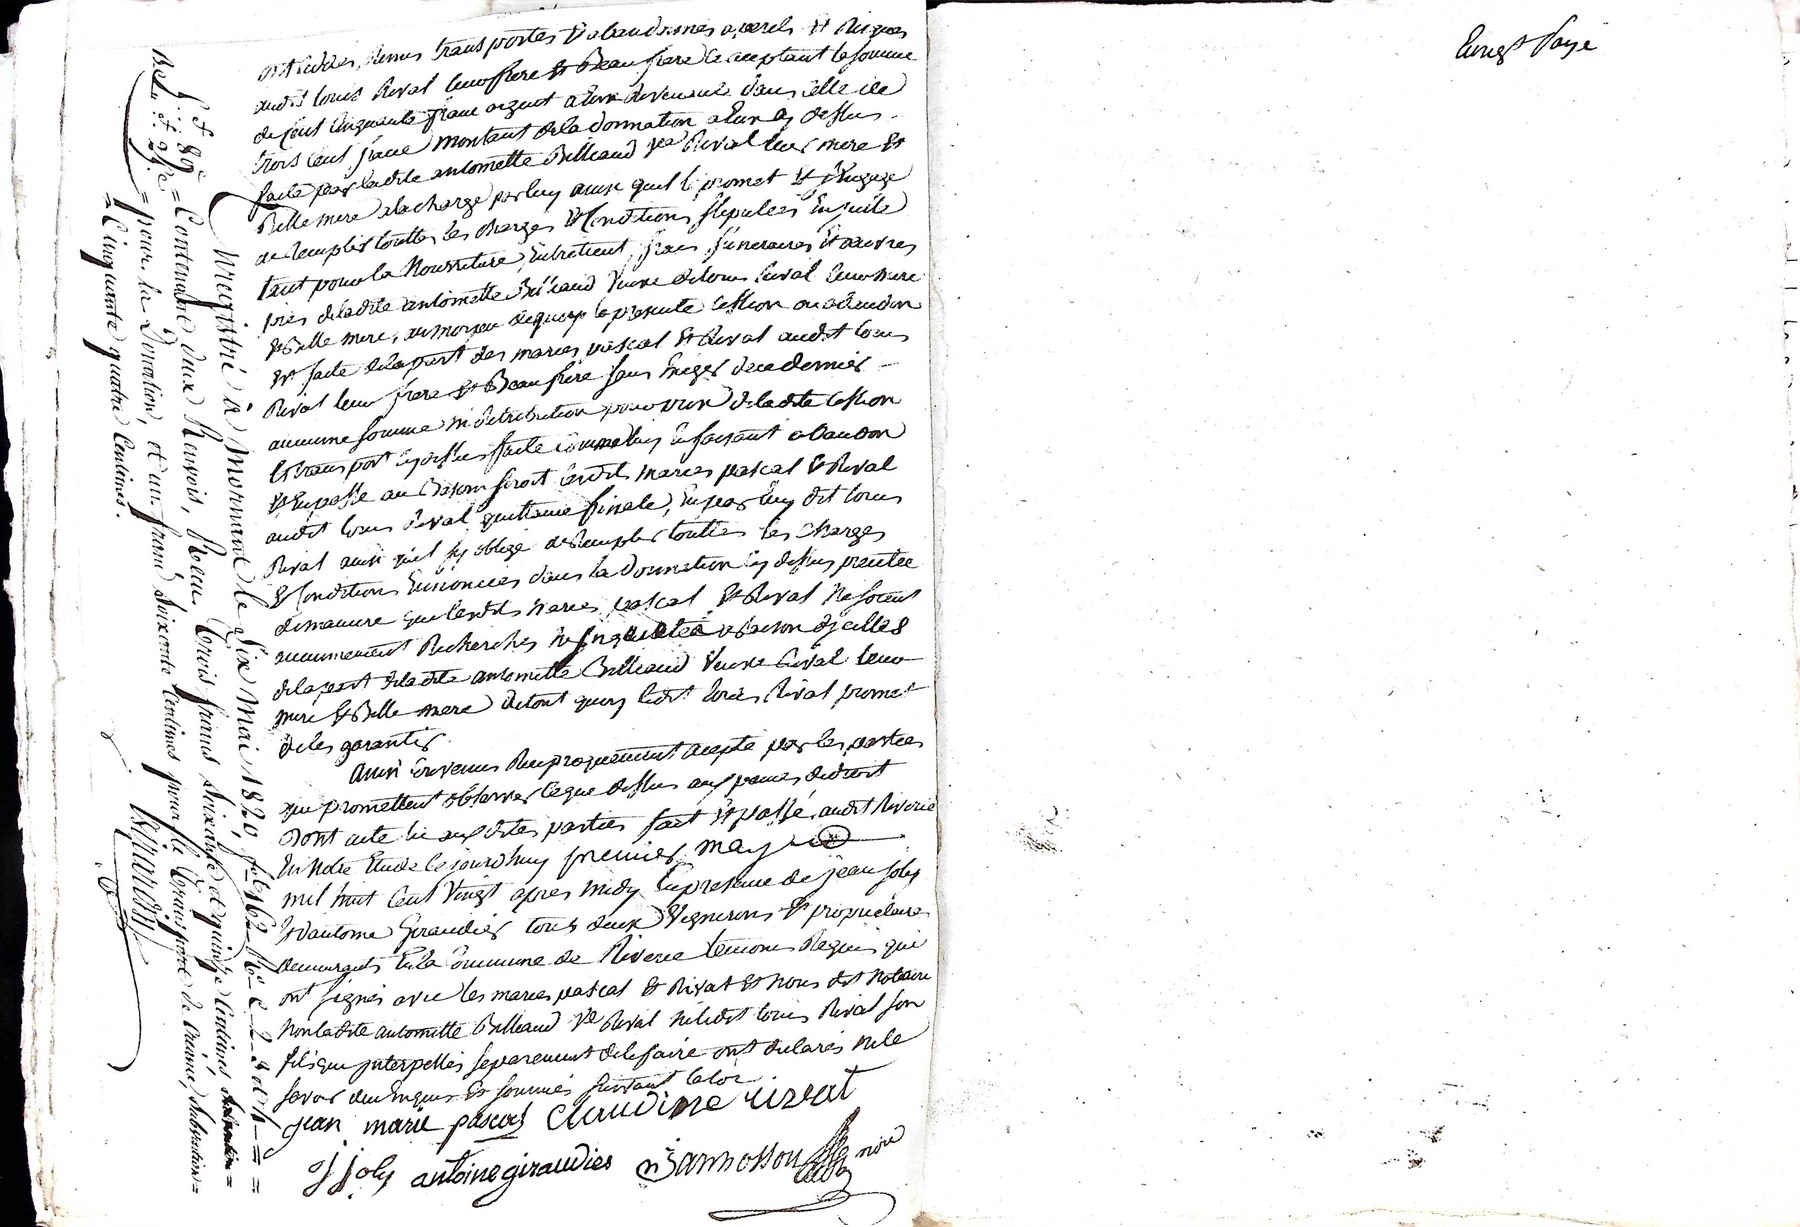 ont cédés, remis transportés & abandonnés a perils & Risques
audit louis Rival leur frere & Beau frere ce acceptant la somme
de cent cinquante franc argent a Eux devenue dans celle de
trois cent franc montant de la donnation a Eux cy dessus
faite par ladite antoinette Billiaud ve Rival leur mere &
Belle mere a la charge par luy ainsi quil le promet & s'engage
de remplir touttes les charges & Conditions stipulées Ensuite
tant pour la Nourriture, Entretient, frais funeraires & œuvres
pies de ladite antoinette Billiaud Veuve de louis Rival leur mere
& Belle mere, au moyen de quoy la presente cession ou abandon
est faite de la part des mariés pascal & Rival audit louis
Rival leur frere & Beau frere sans Exiger de ce dernier
aucunne somme ni retribution pour prix de ladite cession
& transport cy dessus faite comme luy En faisant abandon
& En passe au Besoin seroit lesdits mariés pascal & Rival
audit louis Rival quittance finale, En par luy dit louis
Rival ainsi quil sy oblige de Remplir touttes les charges
& Conditions Enoncées dans la Donnation cy dessus
de maniere que lesdits mariés pascal & Rival Ne soient
aucunement Recherchés ni Inquiétés a Raison dycelles
de la part de ladite antoinette Billiaud Veuve Rival leur
mere & Belle mere de tout quoy ledit louis Rival promet
de les garantir.
Ainsi Convenu Reciproquement accepté par les parties
qui promettent observer ce que dessus aux peines de droit
Dont acte lu auxdites parties fait & passé audit Riverie
En Notre Etude Cejourdhuy premier may
mil huit Cent Vingt apres midy En presence de jean joly
& d'antoine Giraudier tous deux Vignerons & proprietaires
demeurants En la Commune de Riverie temoins Requis qui
ont signés avec les mariés pascal & Rival & Nous dit Notaire
Non ladite antoinette Billiaud Ve Rival ni ledit louis Rival son
fils qui Interpellés separement de le faire ont declarés ne le
savoir de ce Enquis & sommés suivant la loi
jean marie pascal Claudine rivat
j joly antoine giraudier Bannosson nore
Enregistré à Mornant le Six Mai 1820, fol. 162
Contenant deux Renvois, Reçu Trois francs Soixante et quinze Centimes
= pour la Donation, et un franc Soixante Centimes pour le transport de Créance, Subvention =
= Cinquante quatre Centimes.